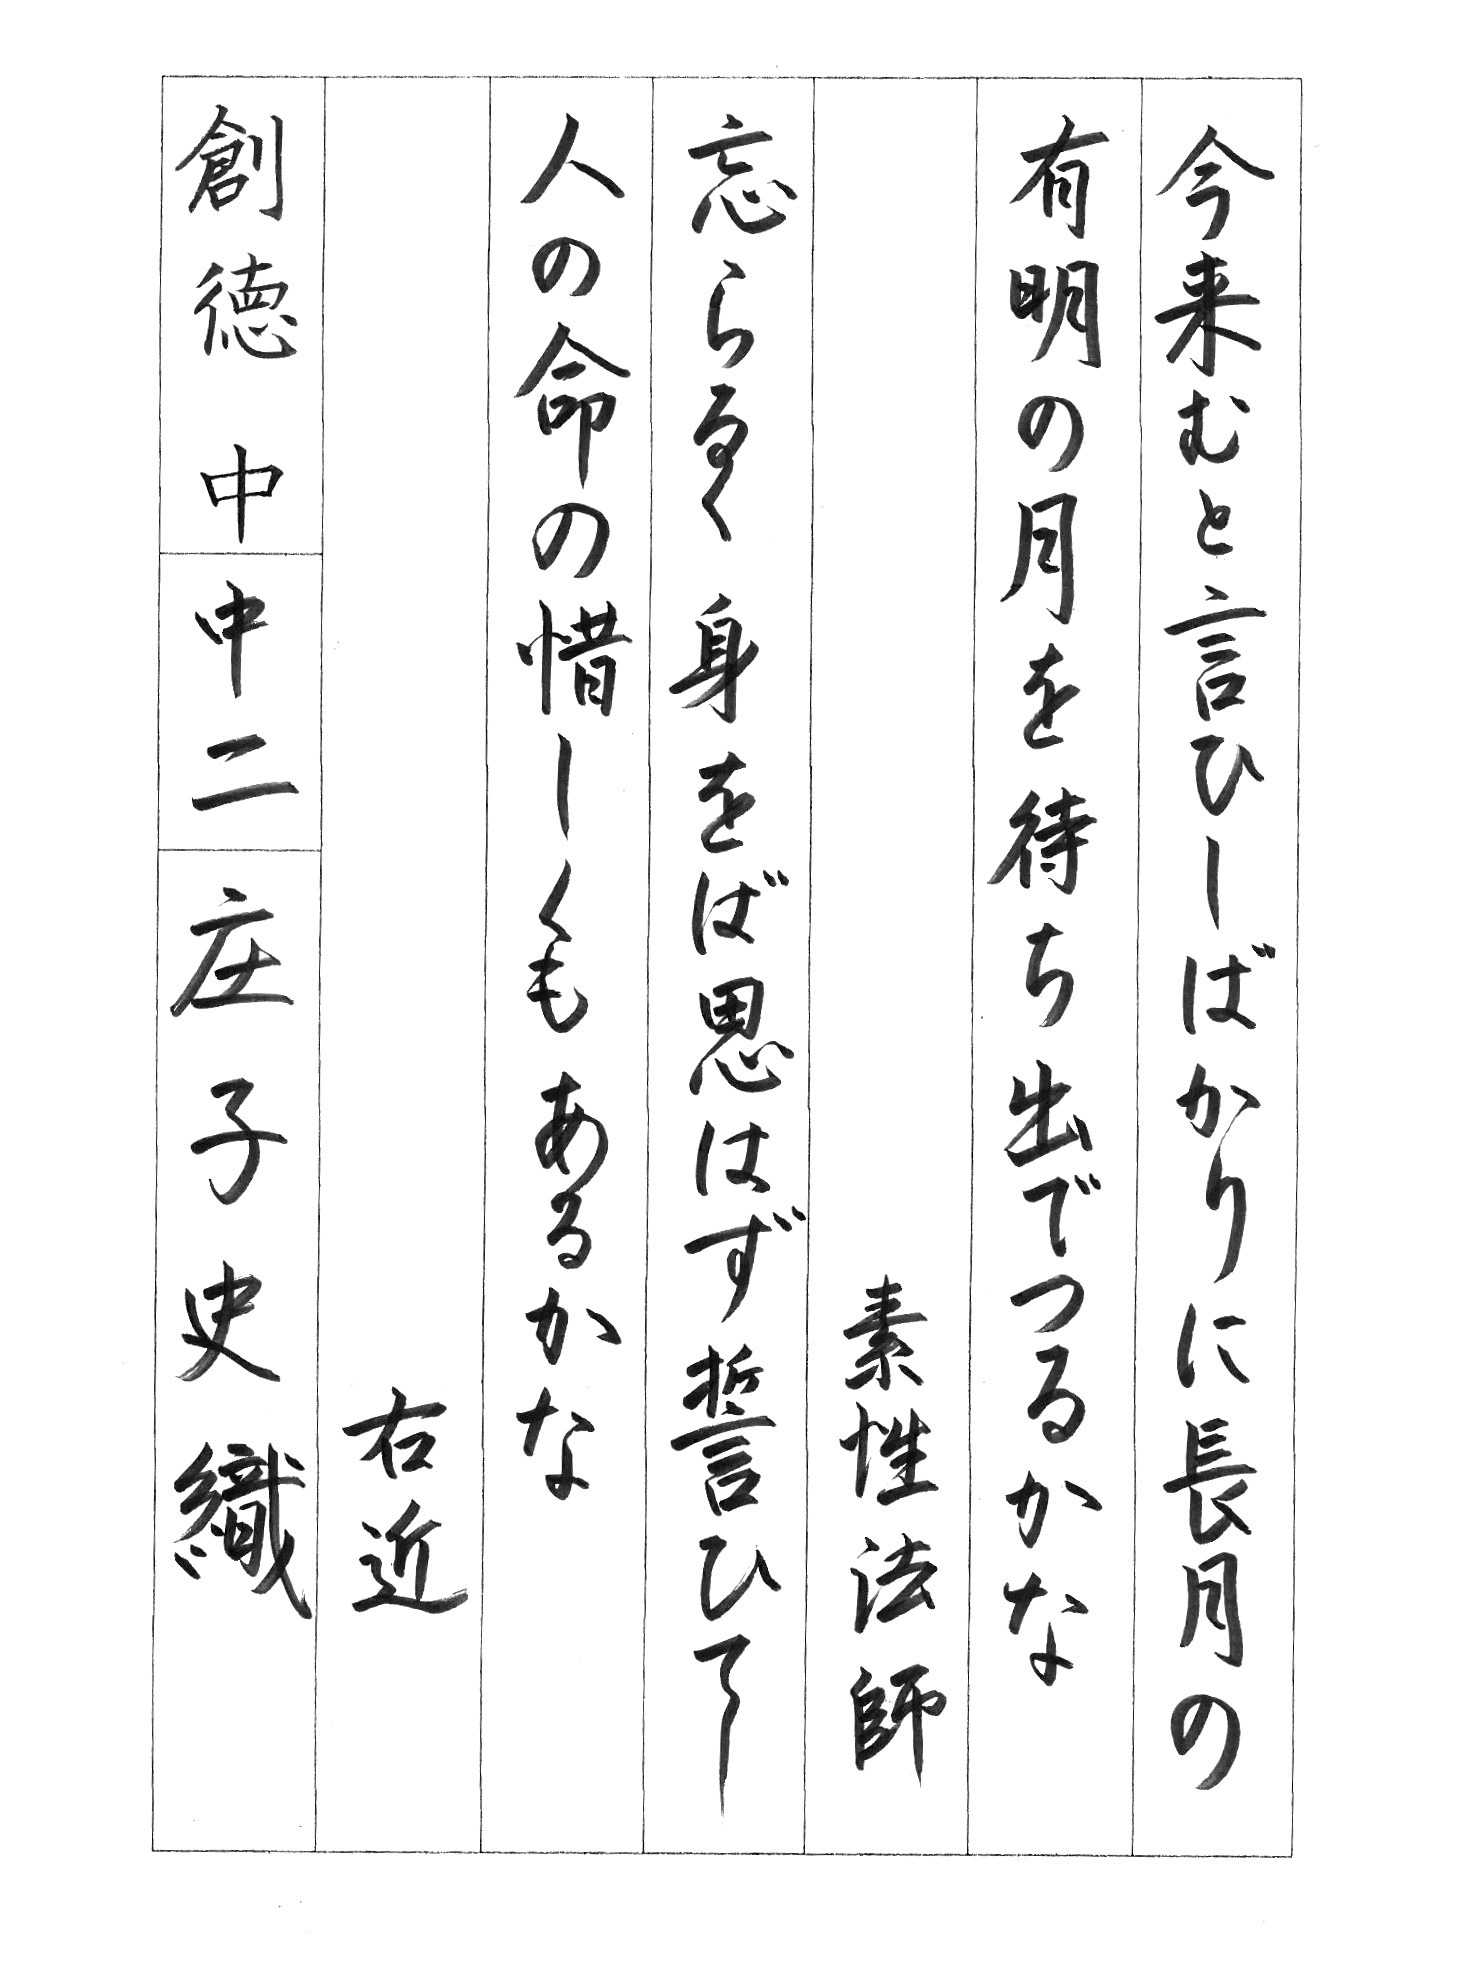 今来むと言ひしばかりに長月の
有明の月を待ち出でつるかな
素性法師
忘らるゝ身をば思はず誓ひてし
人の命の惜しくもあるかな
右近
創徳中
中二
庄子史織